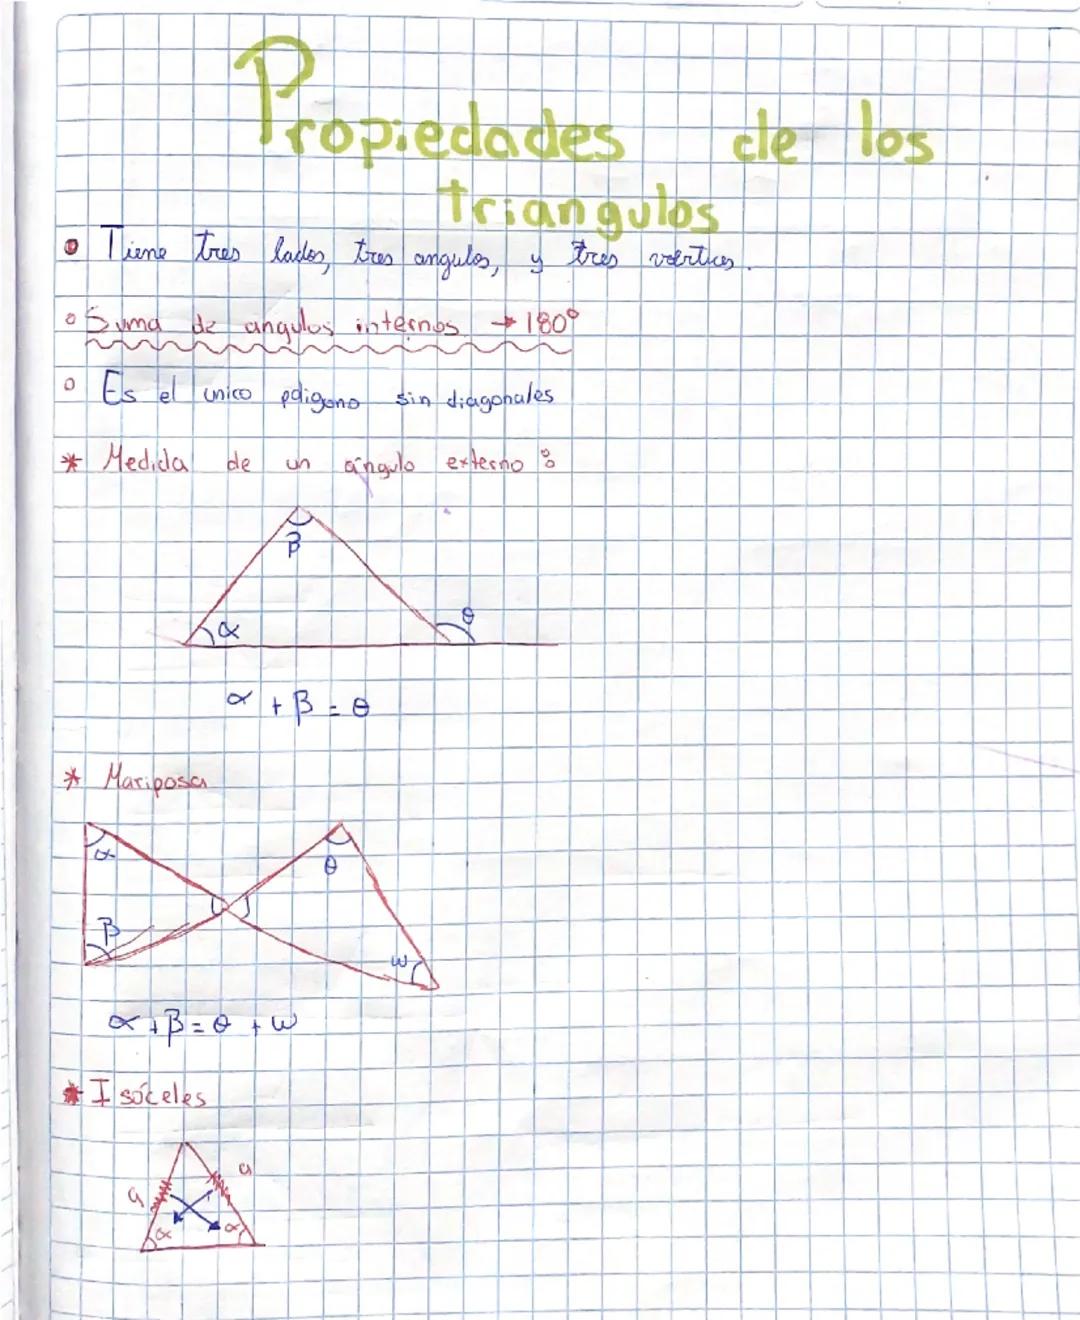 Propiedades de los
triangulos
Tiene tres lados, tres angulos, y tres vértices.
Suma de angulos internos → 180°
Es el unico poligono sin diagonales
* Medida de un ángulo externo :
β
α
θ
α + β = θ
* Mariposa
α
θ
β
ω
α + β = θ + ω
* Isóceles
a a
α α